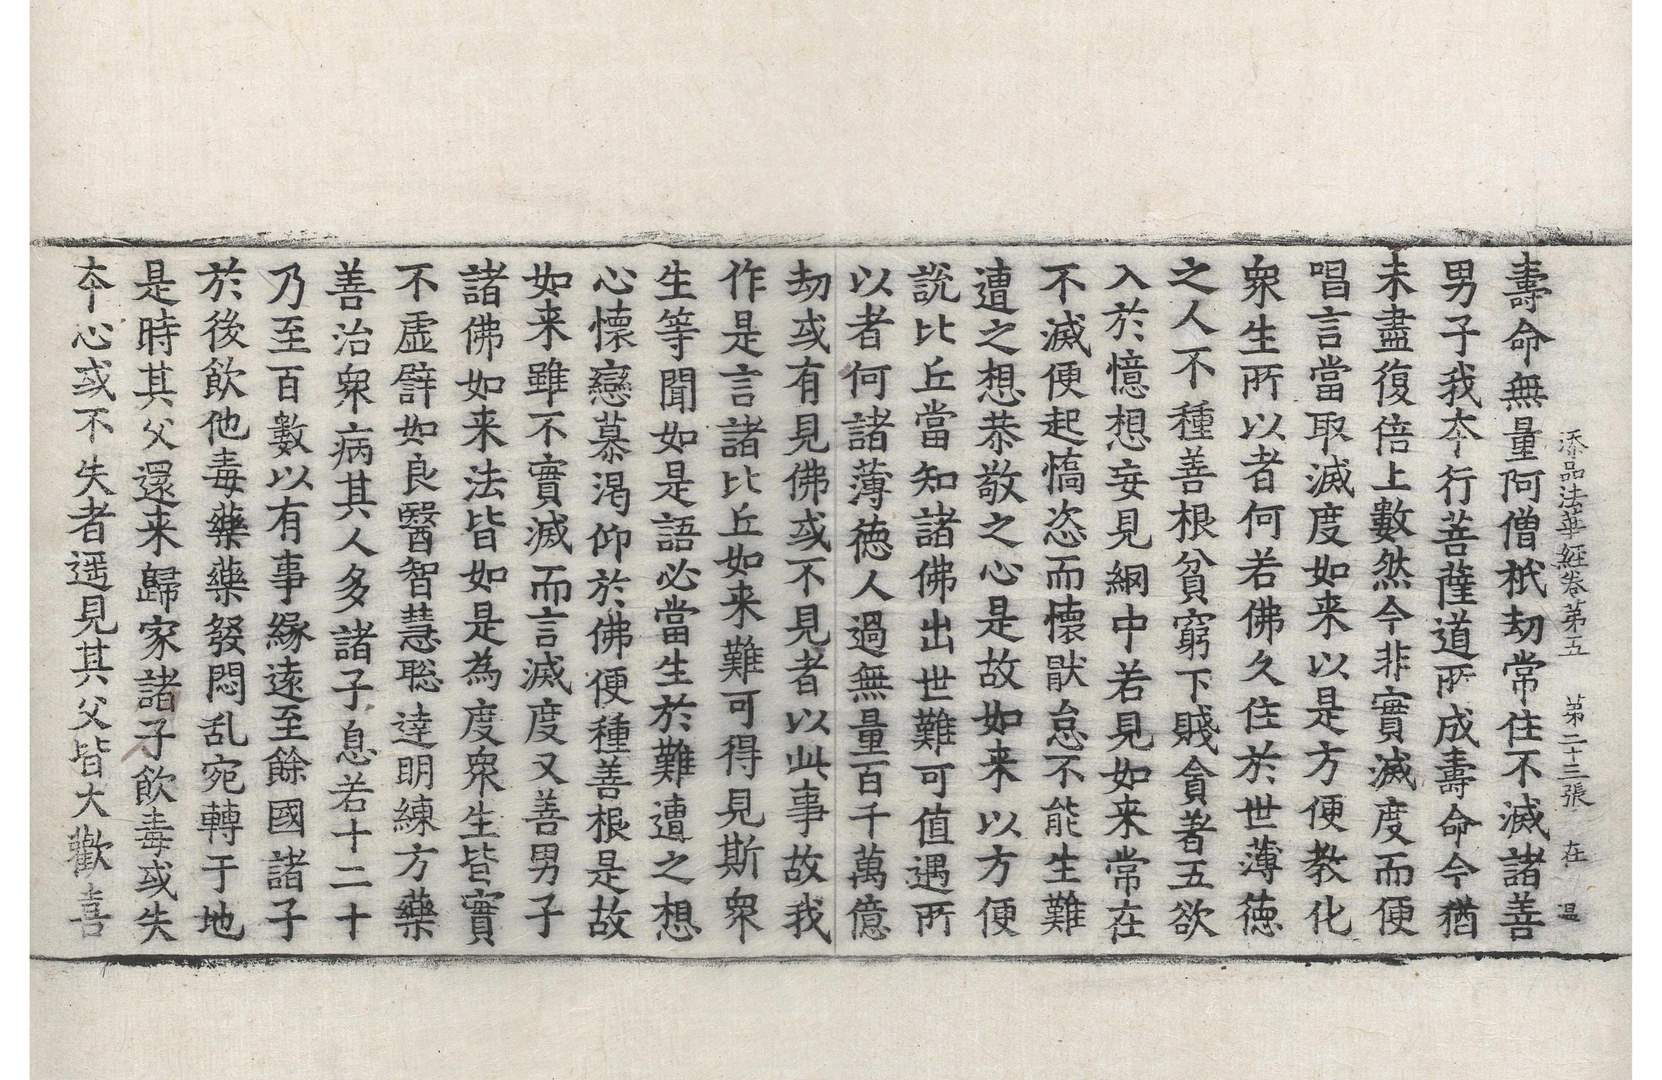 添品法華經卷第五　第二十三張　在　温
壽命無量阿僧祇劫常住不滅諸善
男子我夲行菩薩道所成壽命今猶
未盡復倍上數然今非實滅度而便
唱言當取滅度如来以是方便教化
衆生所以者何若佛久住於世薄德
之人不種善根貧窮下賤貪著五欲
入於憶想妄見網中若見如来常在
不滅便起憍恣而懷猒怠不能生難
遭之想恭敬之心是故如来以方便
說比丘當知諸佛出世難可值遇所
以者何諸薄德人過無量百千萬億
劫或有見佛或不見者以此事故我
作是言諸比丘如来難可得見斯衆
生等聞如是語必當生於難遭之想
心懷戀慕渴仰於佛便種善根是故
如来雖不實滅而言滅度又善男子
諸佛如来法皆如是為度衆生皆實
不虛譬如良醫智慧聡達明練方藥
善治衆病其人多諸子息若十二十
乃至百數以有事緣遠至餘國諸子
於後飲他毒藥藥發悶乱宛轉于地
是時其父還来歸家諸子飲毒或失
夲心或不失者遥見其父皆大歡喜